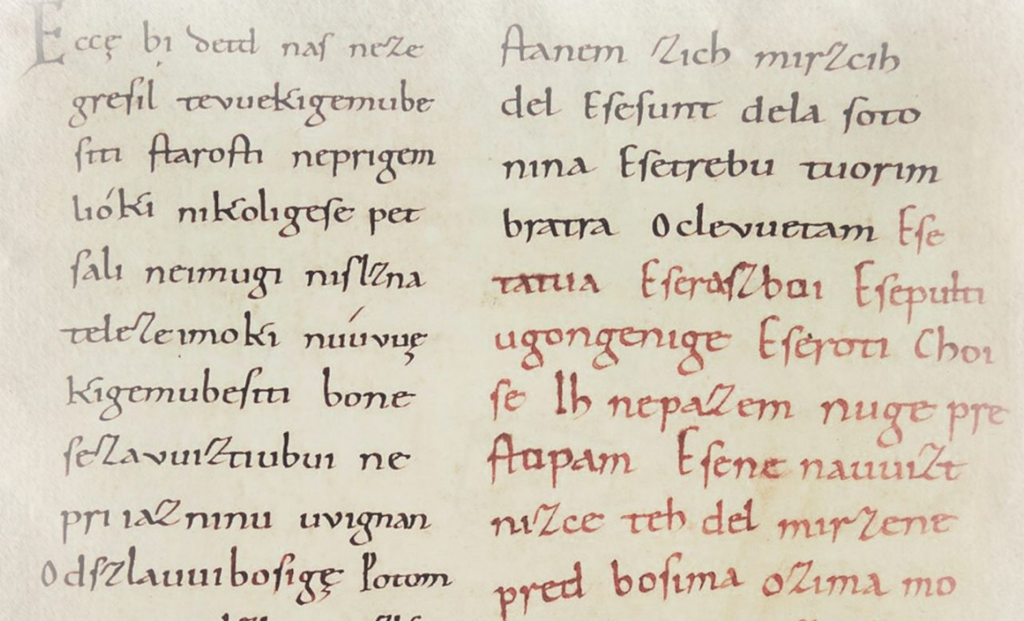 Eccę bi detd naſ neze
greſil tevuekigemube
ſiti ſtaroſti neprigem
lióki nikoligeſe pet
ſali neimugi niſlzna
teleze imoki nuúvuę
kigemubeſiti bone
ſezavuiztiubui ne
pri iazninu uvignan
Odſzlauuiboſigę Potom
ſtanem zich mirzcih
del Eſeſunt dela ſoto
nina Eſetrebu tuorim
bratra Oclevuetam Eſe
tatua Eſeraſzboi Eſepulti
ugongenige Eſeroti Choi
ſe Ih nepazem nuge pre
ſtopam Eſene nauuizt
nizce teh del mirzene
pred boſima ozima mo